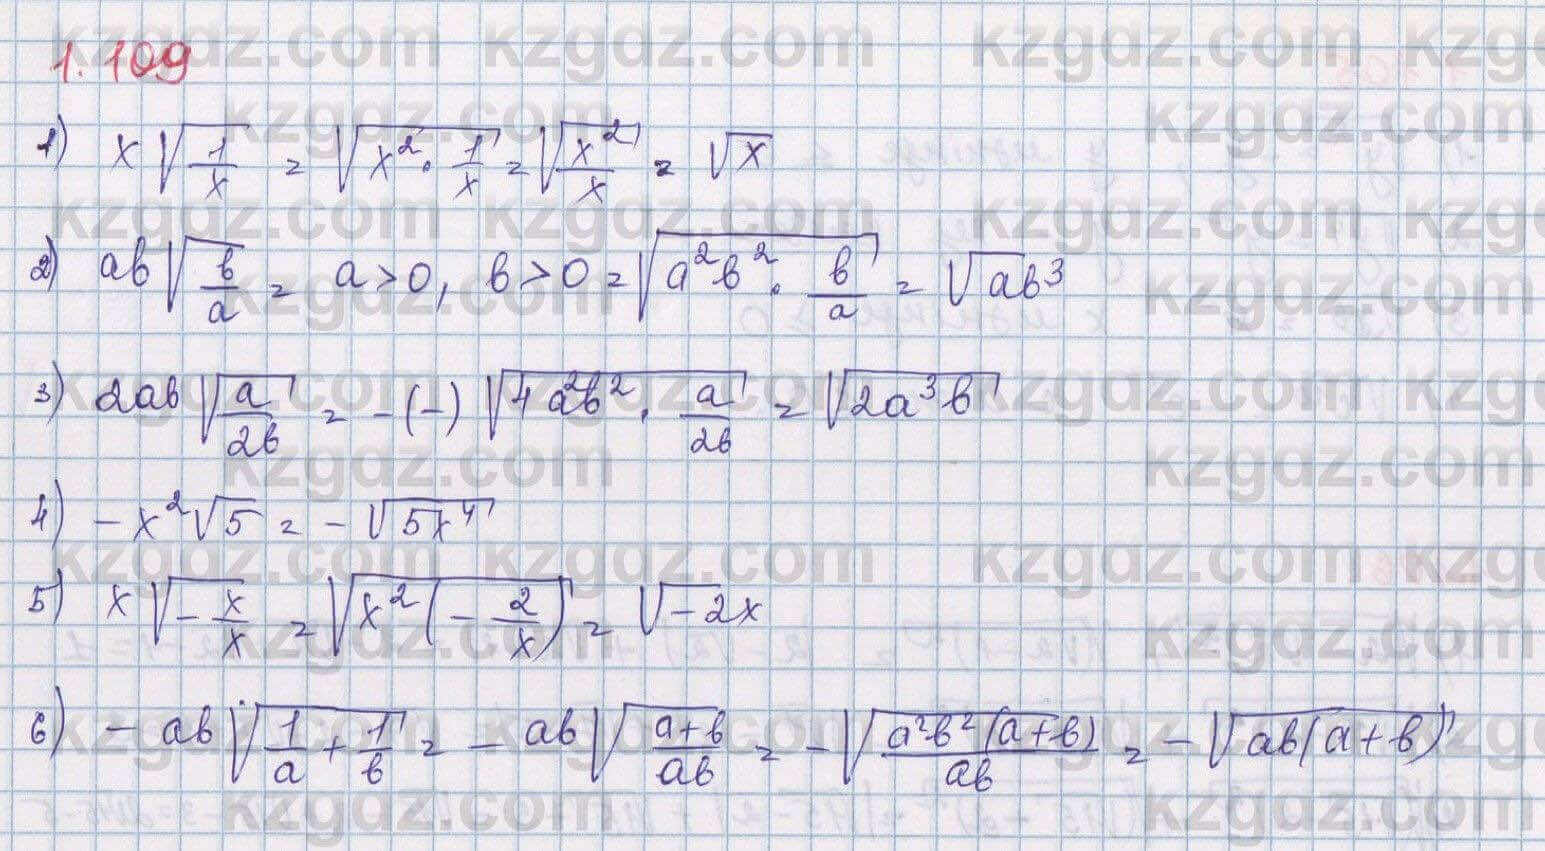 1.109
1) x√(1/x) = √(x² · 1/x) = √(x²/x) = √x
2) ab√(b/a) = a>0, b>0 = √(a²b² · b/a) = √ab³
3) 2ab√(a/2b) = -(-)√(4a²b² · a/2b) = √(2a³b)
4) -x²√5 = -√(5x⁴)
5) x√(-x/x) = √(x²(-2/x)) = √-2x
6) -ab√(1/a + 1/b) = -ab√((a+b)/ab) = -√(a²b²(a+b)/ab) = -√(ab(a+b))
kzgdz.com